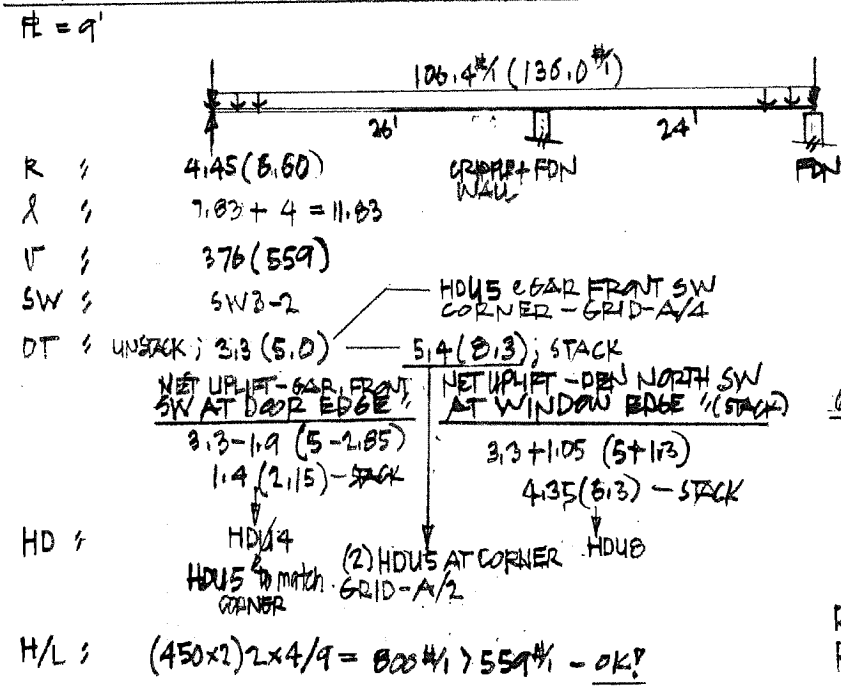 PL = 9'
106.4#/1 (136.0#/1)
26' 24'
CRIPPLE + FDN WALL
FDN
R : 4.45 (6.60)
l : 7.83 + 4 = 11.83
V : 376 (559)
SW : SW3-2
HDU5 @ GAR FRONT SW CORNER - GRID-A/4
OT : UNSTACK ; 3.3 (5.0) — 5.4 (8.3) ; STACK
NET UPLIFT - GAR. FRONT SW AT DOOR EDGE :
3.3 - 1.9 (5 - 2.85)
1.4 (2.15) - STACK
NET UPLIFT - DEN NORTH SW AT WINDOW EDGE : (STACK)
3.3 + 1.05 (5 + 1.3)
4.35 (6.3) - STACK
HD : HDU4
HDU5 to match CORNER
(2) HDU5 AT CORNER GRID-A/2
HDU8
H/L : (450x2) 2x4/9 = 800#/1 > 559#/1 - OK!